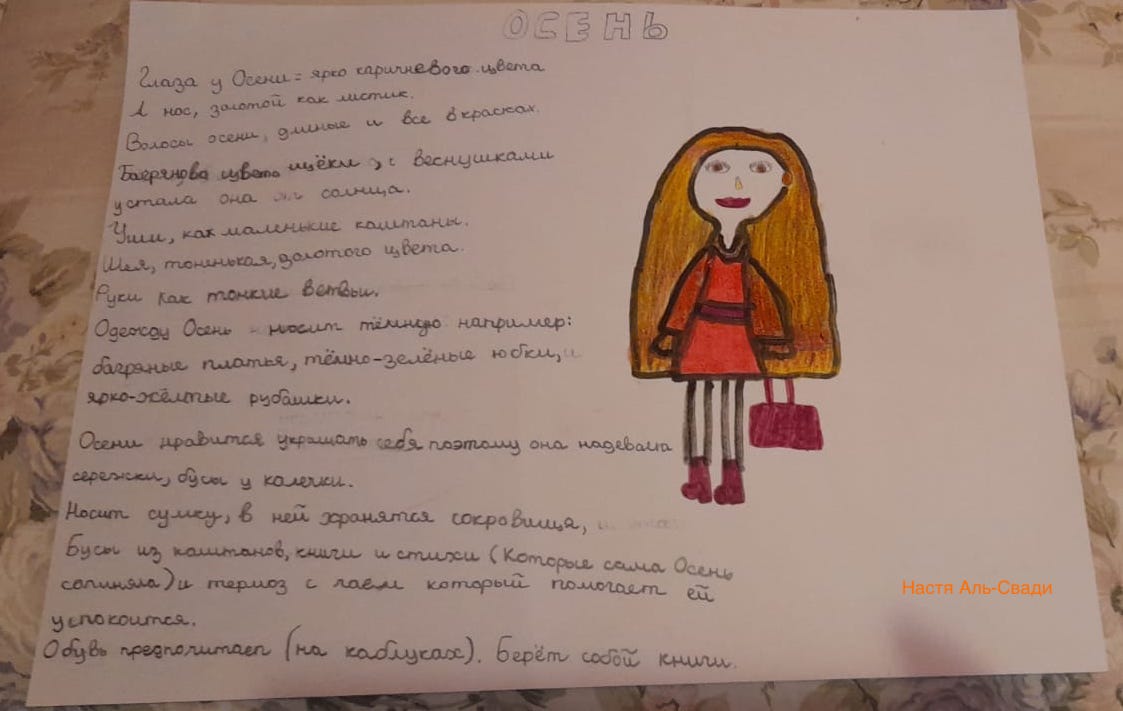 ОСЕНЬ
Глаза у Осени = ярко каричневого цвета
А нос, золотой как листик.
Волосы осени, длиные и все в красках.
Багряново цвета щёки, с веснушками
устала она от солнца.
Уши, как маленькие каштаны.
Шея, тонинькая, золотого цвета.
Руки как тонкие ветвьи.
Одежду Осень носит тёмную например:
багряные платья, тёмно-зелёные юбки, и
ярко-жёлтые рубашки.
Осени нравится украшать себя поэтому она надевала
сережки, бусы у колечки.
Носит сумку, в ней хранятся сокровища,
Бусы из каштанов, книги и стихи (Которые сама Осень
сапиняла) и термоз с чаем который помогает ей
успокоится.
Обувь предпочитает (на каблуках). Берёт собой книги.
Настя Аль-Свади